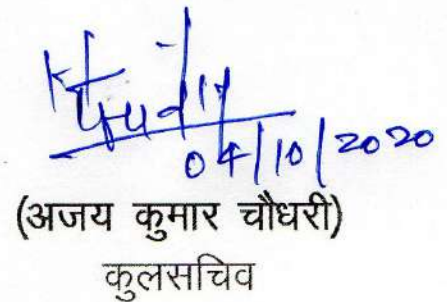 04/10/2020
(अजय कुमार चौधरी)
कुलसचिव